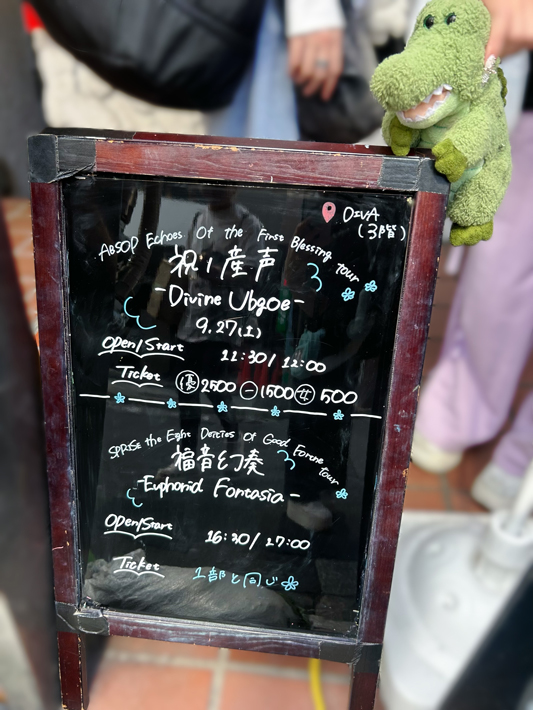 DIVA
(3階)
ABSOP Echoes Of the First Blessing tour
祝i産声
-Divine Ubgoe-
9.27(土)
Open/Start 11:30/12:00
Ticket 優2500 一1500 女500
SPRISE the Eight Deities of Good Forune tour
福音幻奏
-Euphorid Fantasia-
Open/Start 16:30/17:00
Ticket 1部と同じ